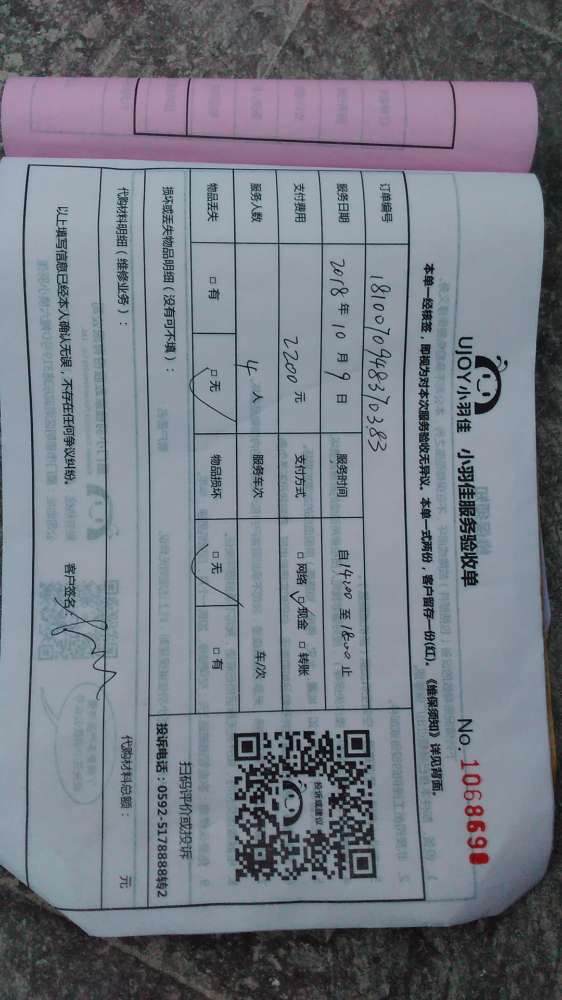 UJOY小羽佳 小羽佳服务验收单
No. 1068598
本单一经核签，即视为对本次服务验收无异议。本单一式两份，客户留存一份(红)。《维保须知》详见背面。
订单编号 1810070948370383
服务日期 2018年10月9日 服务时间 自14:00至18:00止
支付费用 2200元 支付方式 □网络 □现金 □转账
服务人数 4人 服务车次 车/次
物品丢失 □有 □无 物品损坏 □无 □有
投诉或建议
扫码评价或投诉
投诉电话：0592-5178888转2
损坏或丢失物品明细（没有可不填）：
代购材料明细（维修业务）： 代购材料总额： 元
以上填写信息已经本人确认无误，不存在任何争议纠纷。 客户签名：